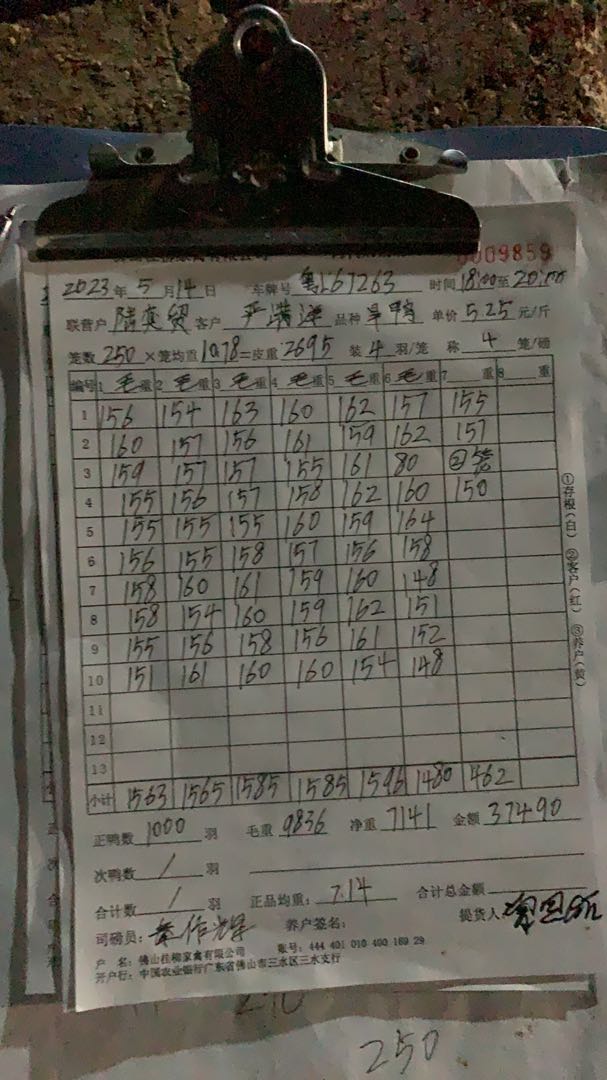 0009859
2023年5月14日 车牌号 粤L67263 时间18:00至20:00
联营户 陆奕贸 客户 品种 旱鸭 单价 5.25 元/斤
笼数 250 ×笼均重 10.78 =皮重: 2695 装 4 羽/笼 称 4 笼/磅
编号 1 毛重 2 毛重 3 毛重 4 毛重 5 毛重 6 毛重 7 重 8 重
1 156 154 163 160 162 157 155
2 160 157 156 161 159 162 157
3 159 157 157 155 161 80
4 155 156 157 158 162 160 150
5 155 155 155 160 159 164
6 156 155 158 157 156 158
7 158 160 161 159 160 148
8 158 154 160 159 162 151
9 155 156 158 156 161 152
10 151 161 160 160 154 148
11
12
13
小计 1563 1565 1585 1585 1596 1480 462
正鸭数 1000 羽 毛重 9836 净重 7141 金额 37490
次鸭数 / 羽
合计数 / 羽 正品均重: 7.14 合计总金额
司磅员: 养户签名: 提货人:
户 名: 佛山佳柳家禽有限公司 账号: 444 401 010 400 169 29
开户行: 中国农业银行广东省佛山市三水区三水支行
①存根(白) ②客户(红) ③养户(黄)
250